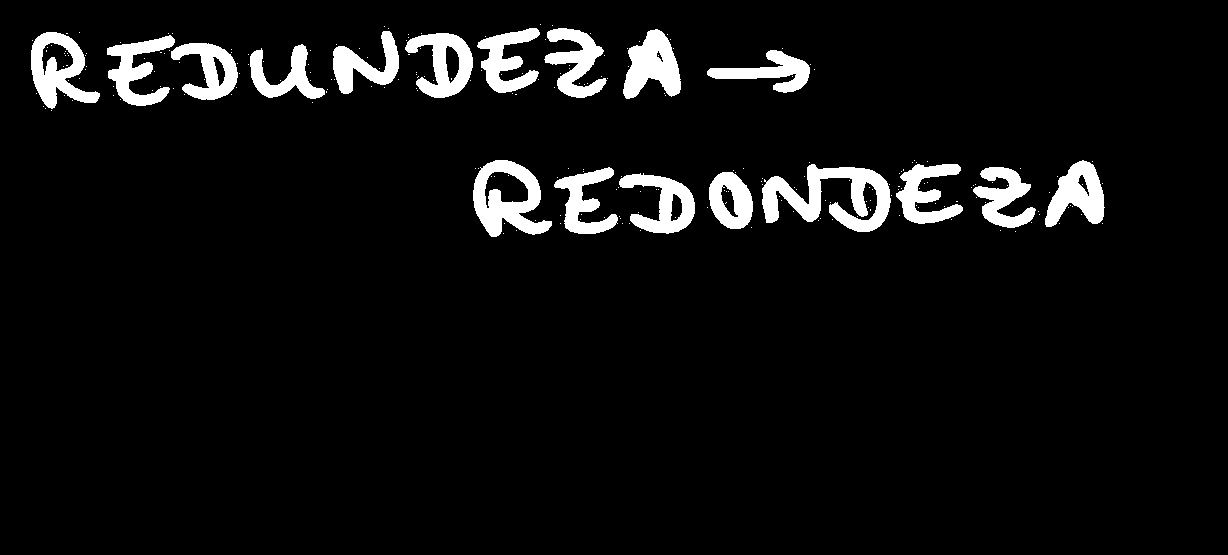 REDUNDEZA →
REDONDEZA